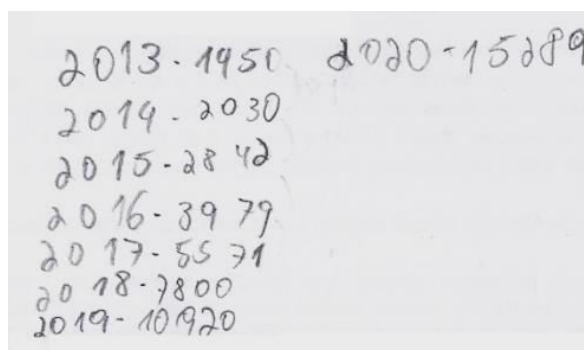 2013-1450
2014-2030
2015-2842
2016-3979
2017-5571
2018-7800
2019-10920
2020-15289